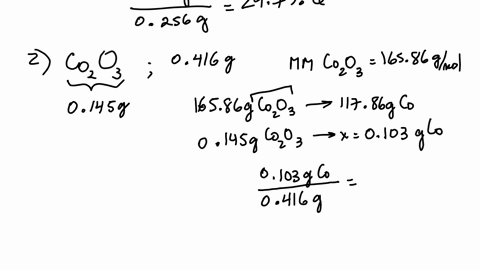 0.256 g =
2) Co2O3 ; 0.416 g MM Co2O3 = 165.86 g/mol
0.145 g
165.86 g Co2O3 → 117.86 g Co
0.145 g Co2O3 → x = 0.103 g Co
0.103 g Co
0.416 g =